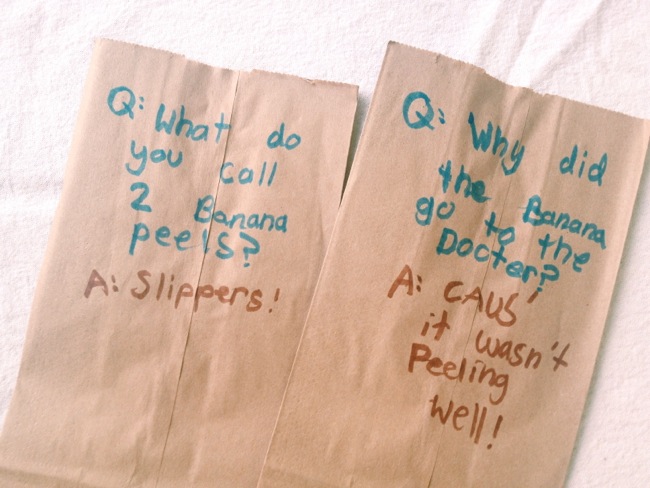 Q: What do
you call
2 Banana
peels?
A: Slippers!
Q: Why did
the Banana
go to the
Docter?
A: CAUS'
it wasn't
Peeling
Well!